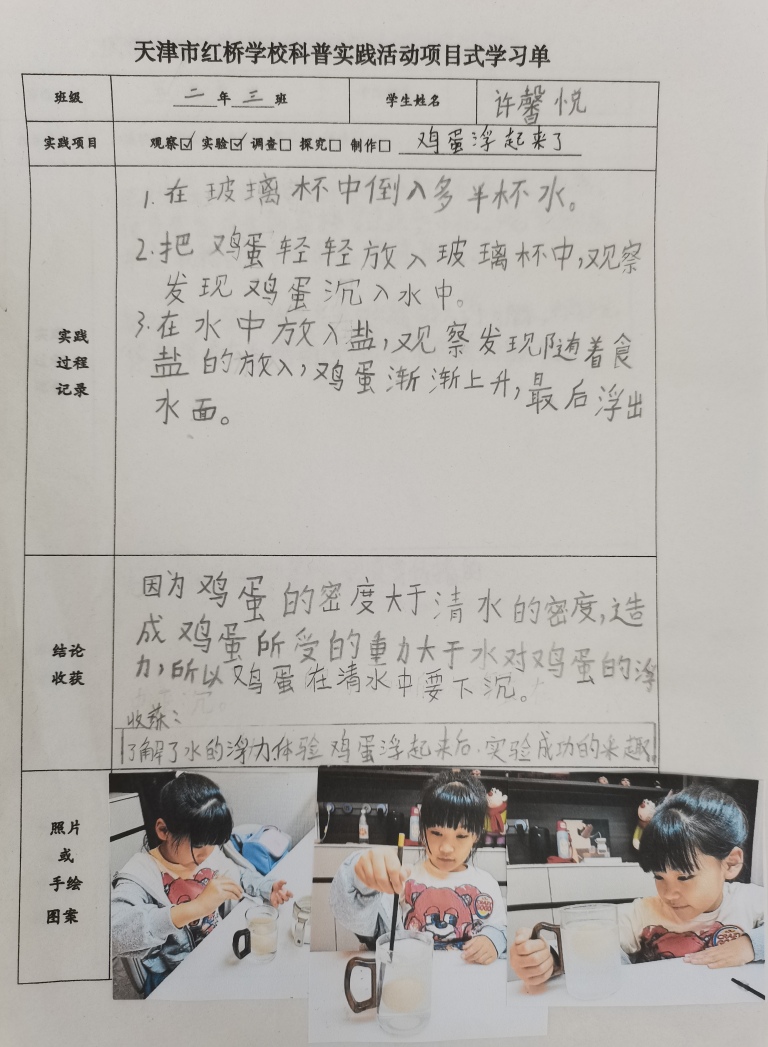 天津市红桥学校科普实践活动项目式学习单
班级 二年三班 学生姓名 许馨悦
实践项目 观察☑ 实验☑ 调查□ 探究□ 制作□ 鸡蛋浮起来了
实践
过程
记录
1.在玻璃杯中倒入多半杯水。
2.把鸡蛋轻轻放入玻璃杯中,观察
发现鸡蛋沉入水中。
3.在水中放入盐,观察发现随着食
盐的放入,鸡蛋渐渐上升,最后浮出
水面。
结论
收获
因为鸡蛋的密度大于清水的密度,造
成鸡蛋所受的重力大于水对鸡蛋的浮
力,所以鸡蛋在清水中要下沉。
收获:
了解了水的浮力.体验鸡蛋浮起来后.实验成功的乐趣
照片
或
手绘
图案